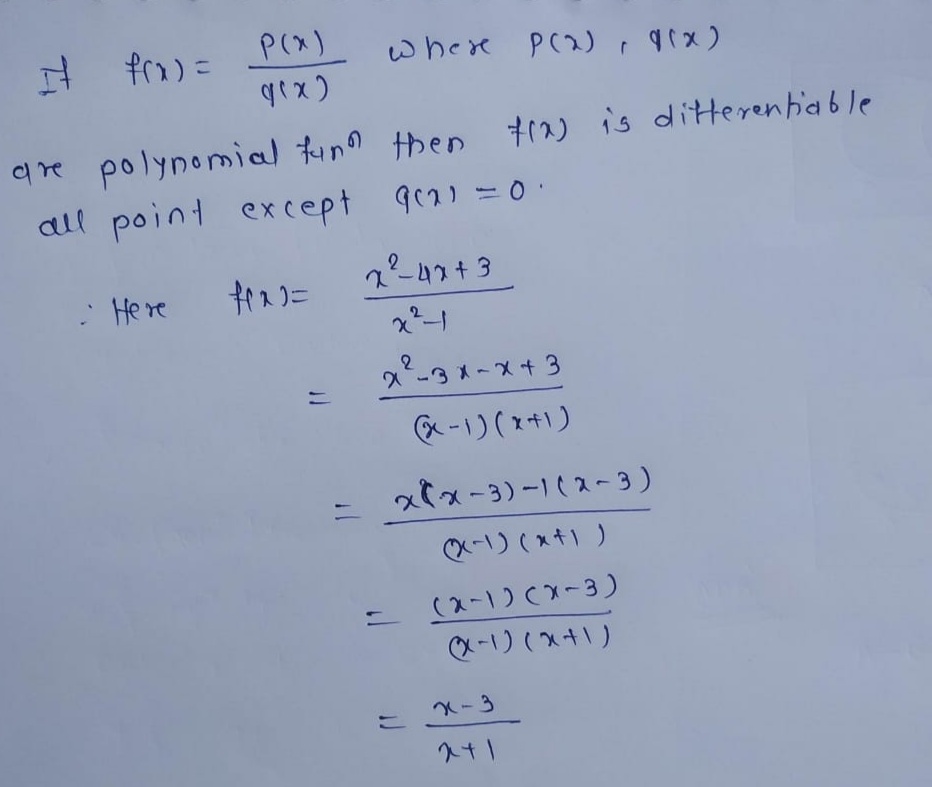 If f(x) = p(x)/q(x) where p(x), q(x)
are polynomial funⁿ then f(x) is differentiable
all point except q(x) = 0.
∴ Here f(x) = (x²-4x+3)/(x²-1)
= (x²-3x-x+3)/((x-1)(x+1))
= (x(x-3)-1(x-3))/((x-1)(x+1))
= ((x-1)(x-3))/((x-1)(x+1))
= (x-3)/(x+1)